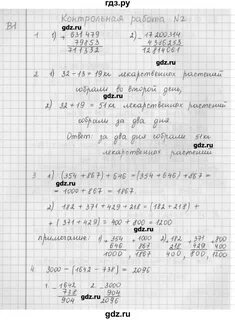 гдз.ру
Контрольная работа №2
В1
1. 1) + 631479 2) - 17200314
79853 4386253
711332 12814061
2. 1) 32 - 13 = 19 кг лекарственных растений
собрали во второй день,
2) 32 + 19 = 51 кг лекарственных растений
собрали за два дня.
Ответ: за два дня собрали 51 кг
лекарственных растений
3. 1) (354 + 867) + 646 = (354 + 646) + 867 =
= 1000 + 867 = 1867.
2) 182 + 371 + 429 + 218 = (182 + 218) +
+ (371 + 429) = 400 + 800 = 1200
примечание: 1) + 354 + 1000 2) + 182 + 371 + 800
646 867 218 429 400
1000, 1867 400, 800, 1200
4. 3000 - (1642 - 738) = 2096
1. - 1642 2. - 3000
738 904
904 2096
gdz.ru